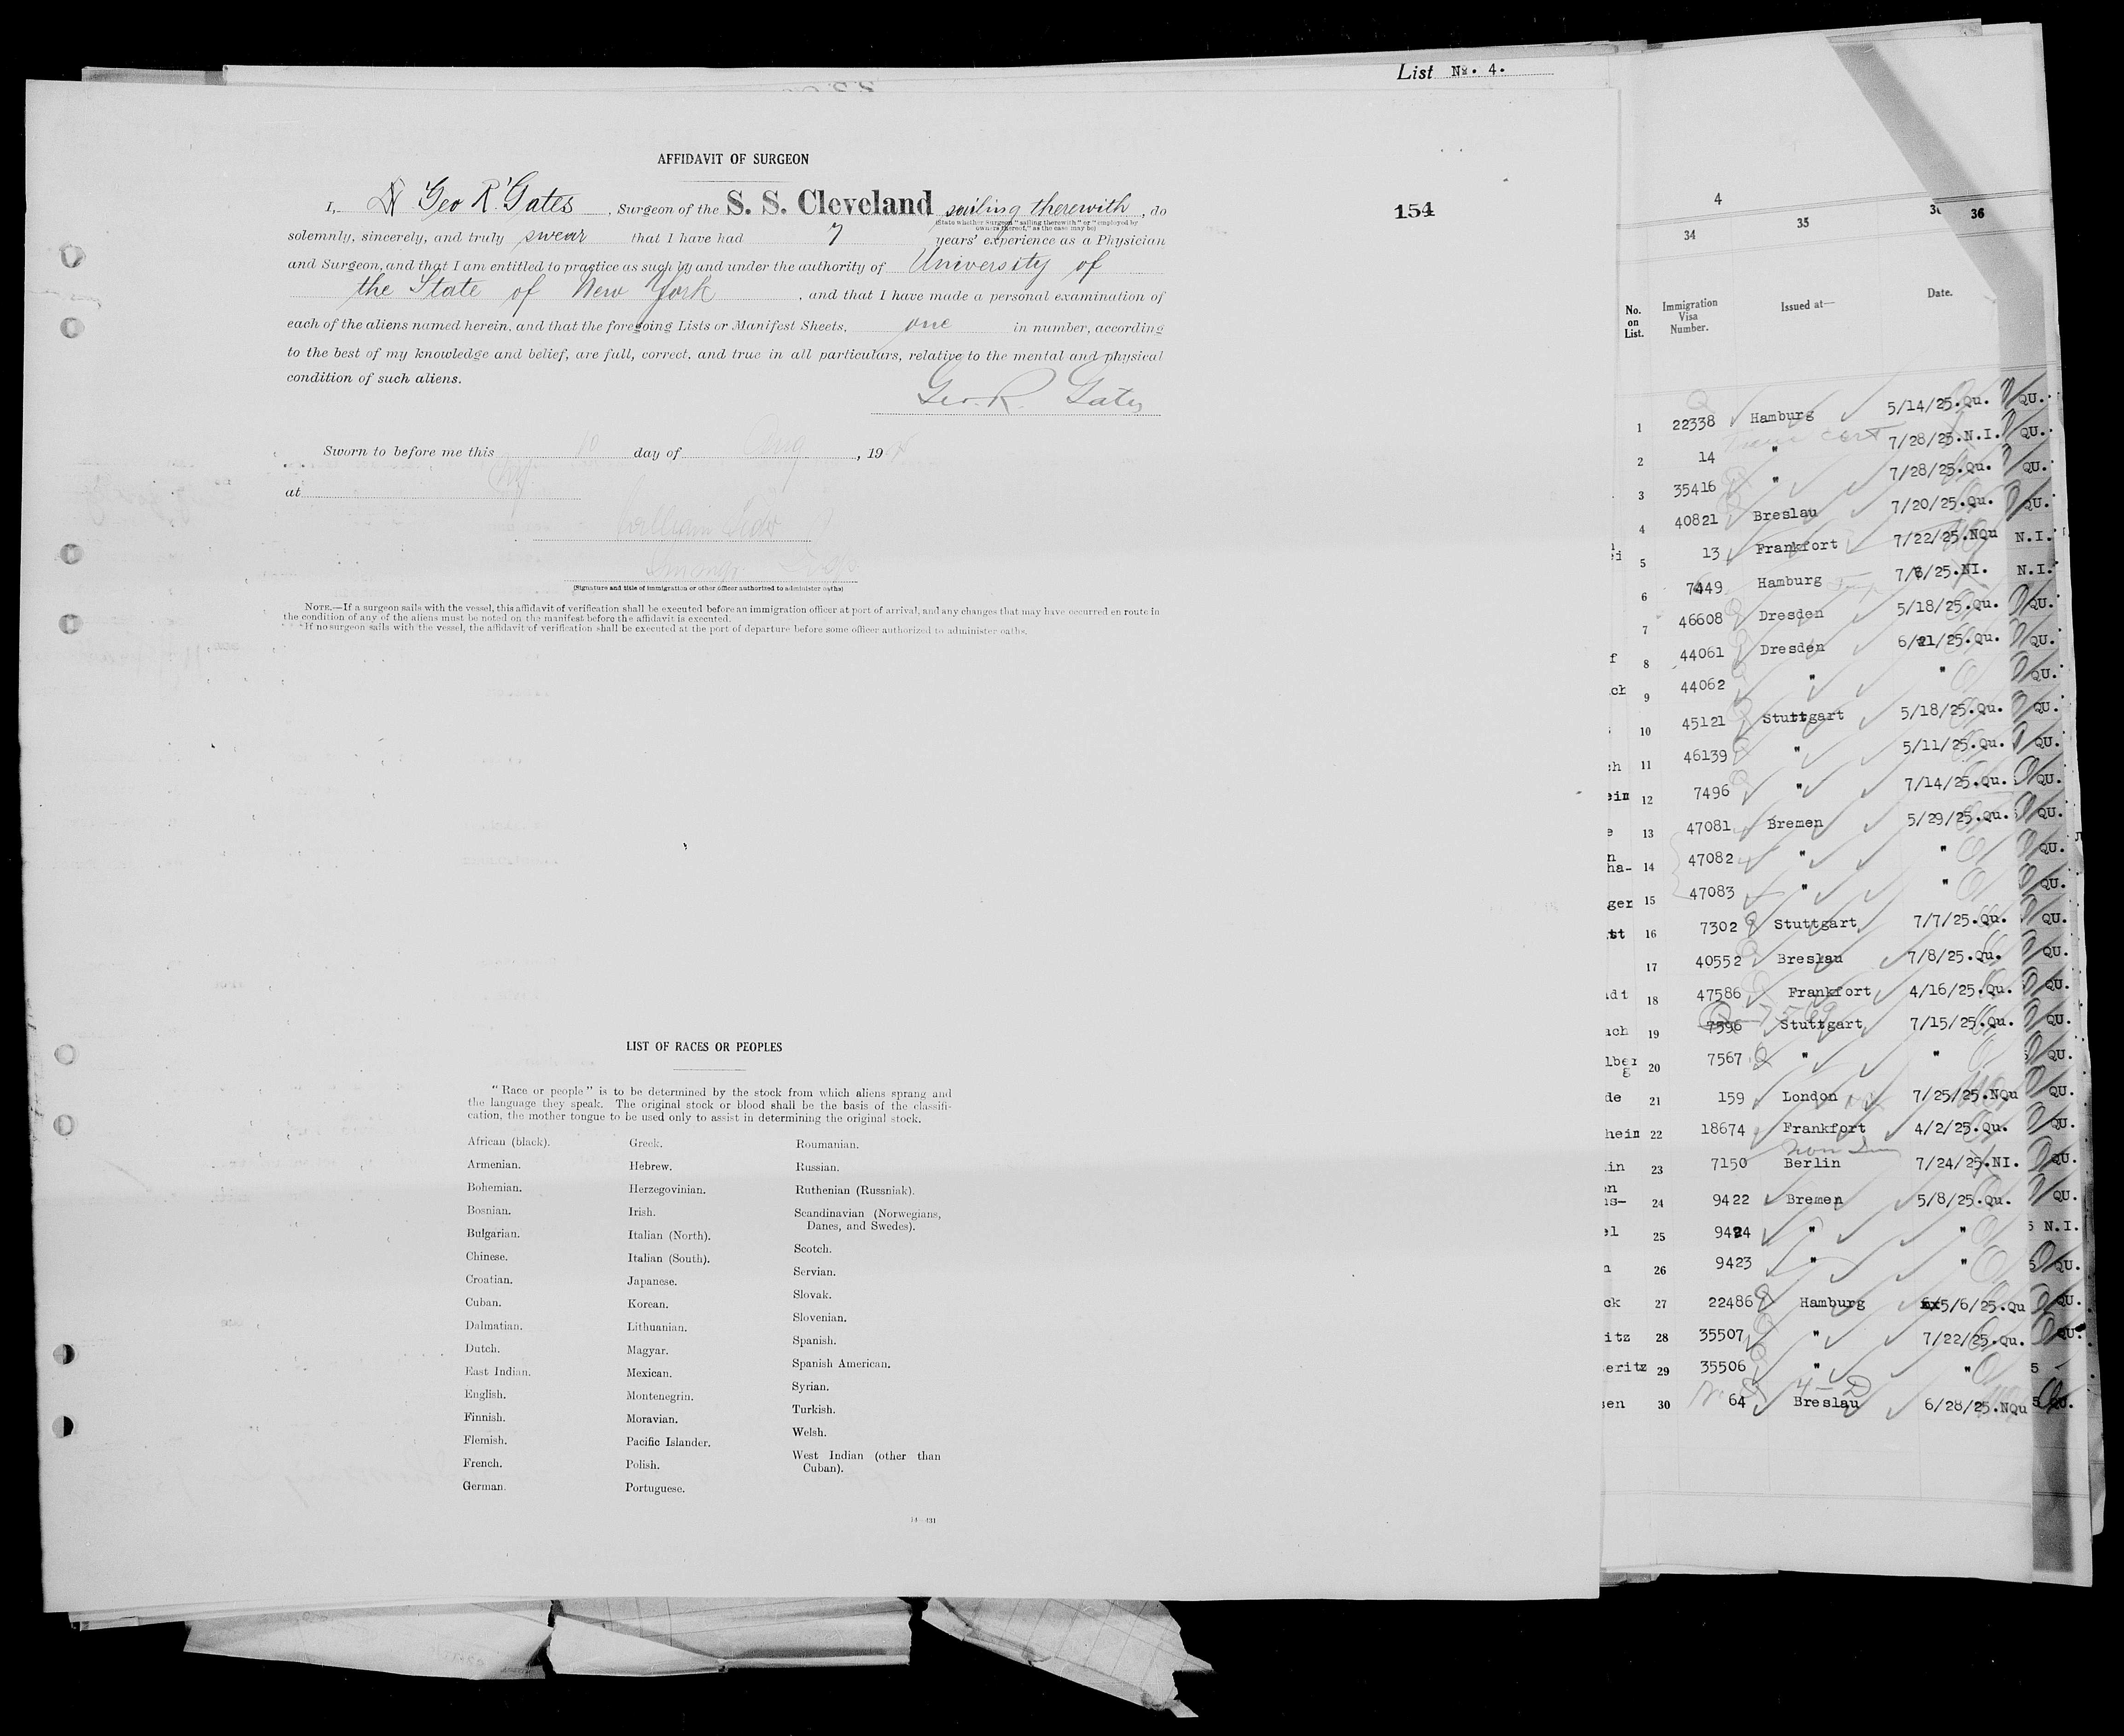 List No. 4.
154
AFFIDAVIT OF SURGEON
I, Dr Geo R. Gates, Surgeon of the S. S. Cleveland sailing therewith, do
(State whether Surgeon "sailing therewith" or "employed by
owners thereof," as the case may be)
solemnly, sincerely, and truly swear that I have had 7 years' experience as a Physician
and Surgeon, and that I am entitled to practice as such by and under the authority of University of
the State of New York, and that I have made a personal examination of
each of the aliens named herein, and that the foregoing Lists or Manifest Sheets, one in number, according
to the best of my knowledge and belief, are full, correct, and true in all particulars, relative to the mental and physical
condition of such aliens.
Geo. R. Gates
Sworn to before me this 10 day of Aug, 19
at
William
(Signature and title of immigration or other officer authorized to administer oaths)
NOTE.—If a surgeon sails with the vessel, this affidavit of verification shall be executed before an immigration officer at port of arrival, and any changes that may have occurred en route in
the condition of any of the aliens must be noted on the manifest before the affidavit is executed.
If no surgeon sails with the vessel, the affidavit of verification shall be executed at the port of departure before some officer authorized to administer oaths.
LIST OF RACES OR PEOPLES
"Race or people" is to be determined by the stock from which aliens sprang and
the language they speak. The original stock or blood shall be the basis of the classifi-
cation, the mother tongue to be used only to assist in determining the original stock.
African (black).
Armenian.
Bohemian.
Bosnian.
Bulgarian.
Chinese.
Croatian.
Cuban.
Dalmatian.
Dutch.
East Indian.
English.
Finnish.
Flemish.
French.
German.
Greek.
Hebrew.
Herzegovinian.
Irish.
Italian (North).
Italian (South).
Japanese.
Korean.
Lithuanian.
Magyar.
Mexican.
Montenegrin.
Moravian.
Pacific Islander.
Polish.
Portuguese.
Roumanian.
Russian.
Ruthenian (Russniak).
Scandinavian (Norwegians,
Danes, and Swedes).
Scotch.
Servian.
Slovak.
Slovenian.
Spanish.
Spanish American.
Syrian.
Turkish.
Welsh.
West Indian (other than
Cuban).
14—431
4
34 35 36
No. on List. Immigration Visa Number. Issued at— Date.
1 22338 Hamburg 5/14/25.Qu. QU.
2 14 " 7/28/25.N.I. QU.
3 35416 " 7/28/25.Qu. QU.
4 40821 Breslau 7/20/25.Qu. QU.
5 13 Frankfort 7/22/25.NQu N.I.
6 7449 Hamburg 7/8/25.NI. N.I.
7 46608 Dresden 5/18/25.Qu. QU.
8 44061 Dresden 6/21/25.Qu. QU.
9 44062 " " QU.
10 45121 Stuttgart 5/18/25.Qu. QU.
11 46139 " 5/11/25.Qu. QU.
12 7496 " 7/14/25.Qu. QU.
13 47081 Bremen 5/29/25.Qu. QU.
14 47082 " " QU.
15 47083 " " QU.
16 7302 Stuttgart 7/7/25.Qu. QU.
17 40552 Breslau 7/8/25.Qu. QU.
18 47586 Frankfort 4/16/25.Qu. QU.
19 7596 7569 Stuttgart 7/15/25.Qu. QU.
20 7567 " " QU.
21 159 London 7/25/25.NQu QU.
22 18674 Frankfort 4/2/25.Qu. QU.
23 7150 Berlin 7/24/25.NI. QU.
24 9422 Bremen 5/8/25.Qu. QU.
25 9424 " " N.I.
26 9423 " " QU.
27 22486 Hamburg 5/6/25.Qu QU.
28 35507 " 7/22/25.Qu. QU.
29 35506 " "
30 64 Breslau 6/28/25.NQu QU.